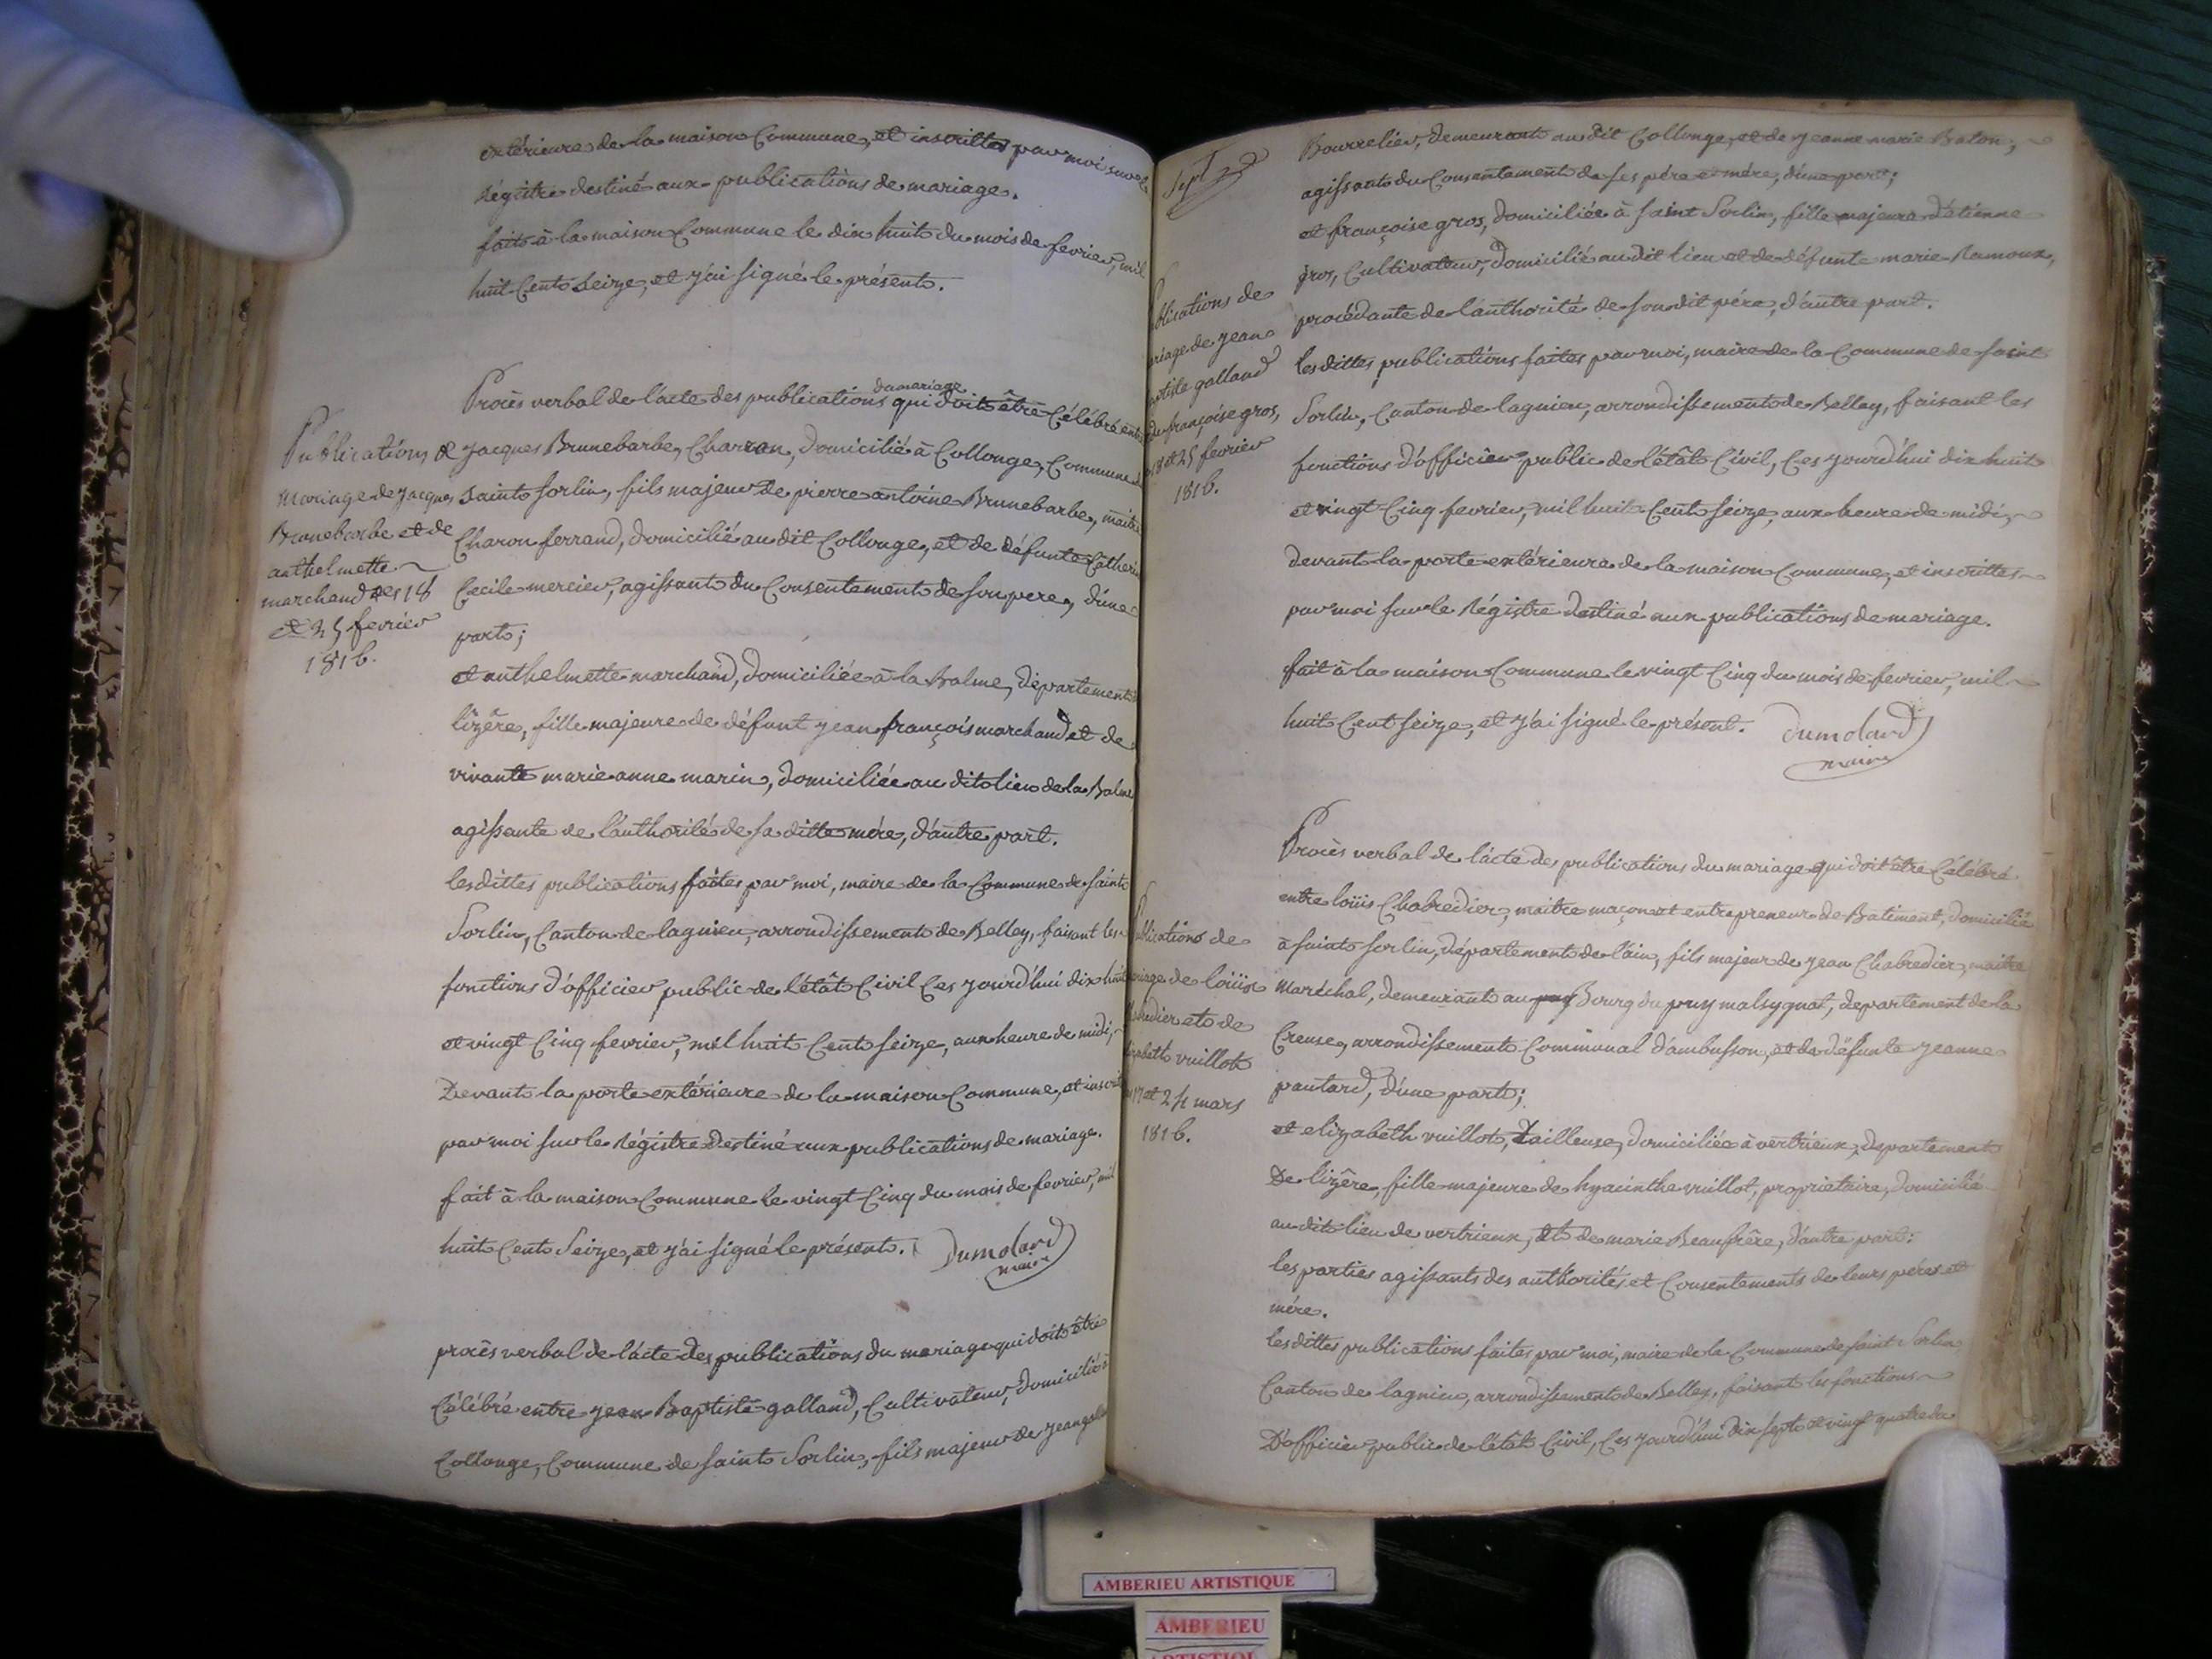 extérieure de la maison Commune, et inscrittes par moi sur le
régistre destiné aux publications de mariage.
fait à la maison Commune le dix huit du mois de fevrier, mil
huit Cent Seize, et j'ai signé le présent.
Publications de
mariage de jacques
Brunebarbe et de
anthelmette
marchand des 18
et 25 fevrier
1816.
Procès verbal de l'acte des publications du mariage qui doit être Célébré entre
jacques Brunebarbe, Charron, domicilié à Collonge, Commune de
saint sorlin, fils majeur de pierre antoine Brunebarbe, maitre
Charon ferrand, domicilié au dit Collonge, et de défunte Catherine
Cecile mercier, agissant du Consentement de son pere, d'une
part;
et anthelmette marchand, domiciliée à la Balme, departement de
l'izêre, fille majeure de défunt jean françois marchand et de
vivante marie anne marin, domiciliée au dit lieu de la Balme
agissante de l'authorité de sa ditte mére, d'autre part.
les dittes publications faites par moi, maire de la Commune de saint
Sorlin, Canton de lagnieu, arrondissement de Belley, faisant les
fonctions d'officier public de l'état Civil Ces yourd'hui dix huit
et vingt Cinq fevrier, mil huit Cent seize, aux heure de midi,
Devant la porte extérieure de la maison Commune, et inscrit
par moi sur le régistre destiné aux publications de mariage.
fait à la maison Commune le vingt Cinq du mois de fevrier, mil
huit Cent Seize, et j'ai signé le présent. Dumolard
maire
procès verbal de l'acte des publications du mariage qui doit être
Célébré entre jean Baptiste galland, Cultivateur, domicilié à
Collonge, Commune de saint Sorlin, fils majeur de jean galland
Sept
publications de
mariage de jean
Baptiste galland
françoise gros,
18 et 25 fevrier
1816.
Bourrelier, demeurant au dit Collonge, et de jeanne marie Baton;
agissant du Consentement de ses pére et mére, d'une part;
et françoise gros, domiciliée à saint Sorlin, fille majeure d'étienne
gros, Cultivateur, domicilié au dit lieu et de défunte marie Ramoux,
procédante de l'authorité de son dit pére, d'autre part.
les dittes publications faites par moi, maire de la Commune de saint
Sorlin, Canton de lagnieu, arrondissement de Belley, faisant les
fonctions d'officier public de l'état Civil, Ces yourd'hui dix huit
et vingt Cinq fevrier, mil huit Cent seize, aux heure de midi,
devant la porte extérieure de la maison Commune, et inscrittes
par moi sur le régistre destiné aux publications de mariage.
fait à la maison Commune le vingt Cinq du mois de fevrier, mil
huit Cent seize, et j'ai signé le présent. Dumolard
maire
Publications de
mariage de loüis
Chabredier et de
elizabeth vuillot
17 et 24 mars
1816.
Procès verbal de l'acte des publications du mariage qui doit être Célébré
entre loüis Chabredier, maitre maçon et entrepreneur de Batiment, domicilié
à saint sorlin, département de l'ain, fils majeur de jean Chabredier, maitre
maréchal, demeurant au Bourg du puy malsygnat, departement de la
Creuse, arrondissement Communal d'ambusson, et de défunte jeanne
pautard, d'une part;
et elizabeth vuillot, Tailleuse, domiciliée à vertrieux, departement
De l'izêre, fille majeure de hyacinthe vuillot, proprietaire, domicilié
au dit lieu de vertrieux, et de marie Beaufrère, d'autre part:
les parties agissants des authorités et Consentements de leurs péres et
mére.
les dittes publications faites par moi, maire de la Commune de saint Sorlin
Canton de lagnieu, arrondissement de Belley, faisant les fonctions
D'officier public de l'état Civil, Ces yourd'hui dix sept et vingt quatre du
AMBERIEU ARTISTIQUE
AMBERIEU
ARTISTIQUE